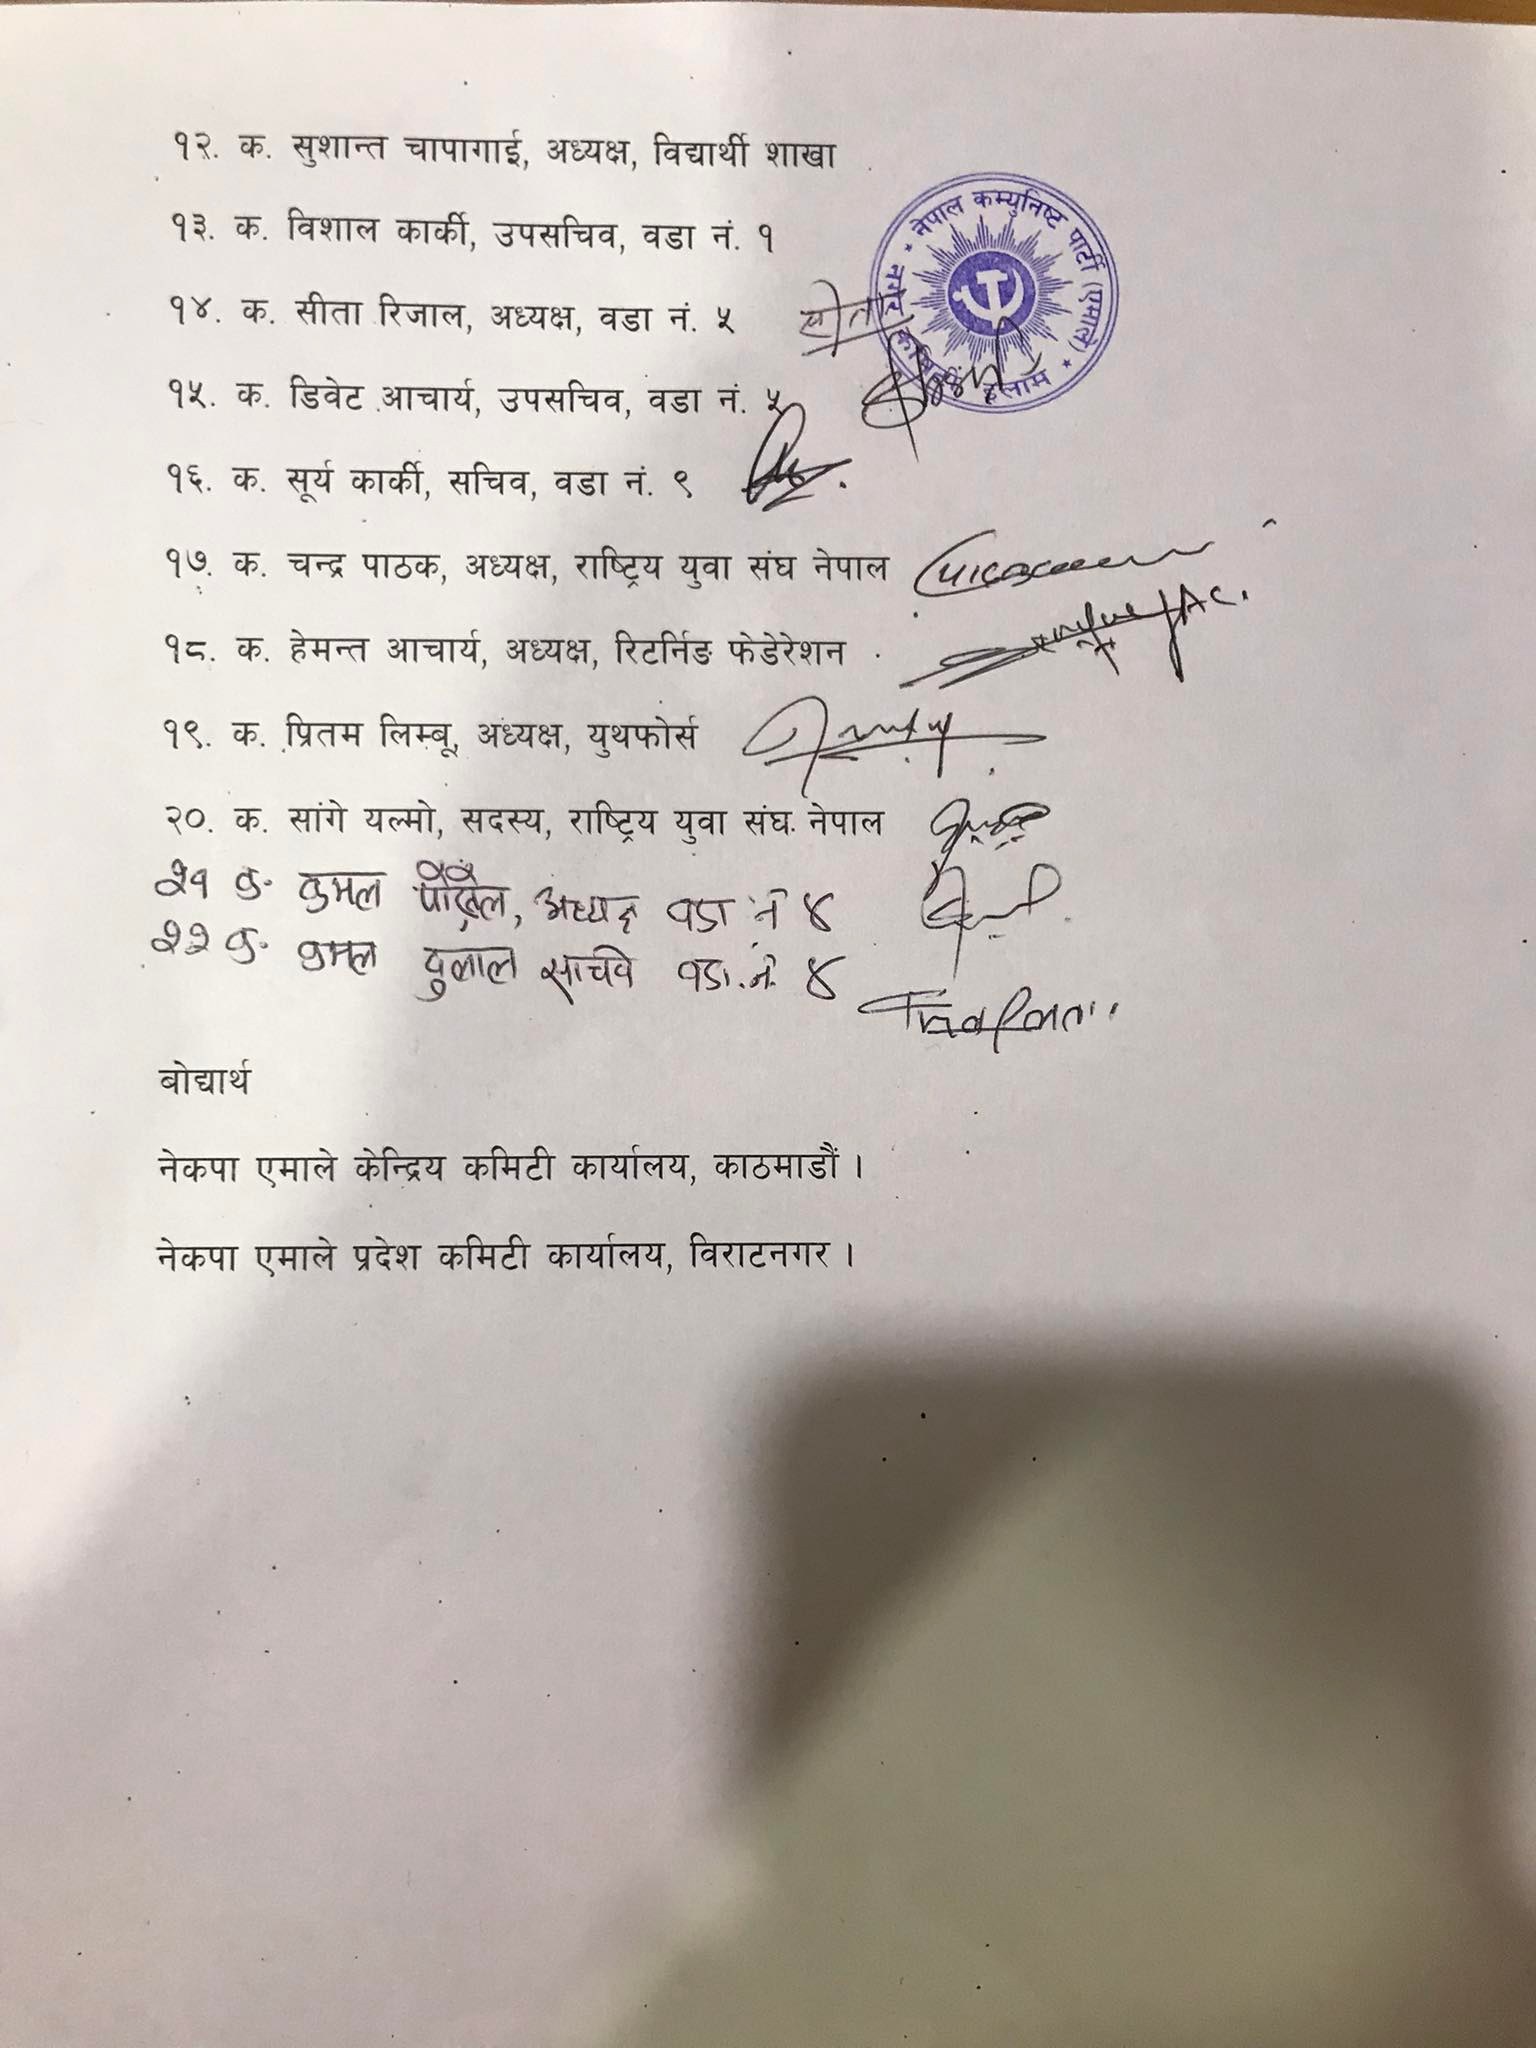 १२. क. सुशान्त चापागाई, अध्यक्ष, विद्यार्थी शाखा
१३. क. विशाल कार्की, उपसचिव, वडा नं. १
नेपाल कम्युनिष्ट पार्टी (एमाले)
नगर कमिटी इलाम
१४. क. सीता रिजाल, अध्यक्ष, वडा नं. ५
सीता
१५. क. डिवेट आचार्य, उपसचिव, वडा नं. ५
१६. क. सूर्य कार्की, सचिव, वडा नं. ९
१७. क. चन्द्र पाठक, अध्यक्ष, राष्ट्रिय युवा संघ नेपाल
१८. क. हेमन्त आचार्य, अध्यक्ष, रिटर्निङ फेडेरेशन
१९. क. प्रितम लिम्बू, अध्यक्ष, युथफोर्स
२०. क. सांगे यल्मो, सदस्य, राष्ट्रिय युवा संघ नेपाल
२१ क. कुमल पौडेल, अध्यक्ष वडा नं ४
२२ क. कमल दुलाल सचिव वडा नं. ४
बोद्यार्थ
नेकपा एमाले केन्द्रिय कमिटी कार्यालय, काठमाडौं ।
नेकपा एमाले प्रदेश कमिटी कार्यालय, विराटनगर ।